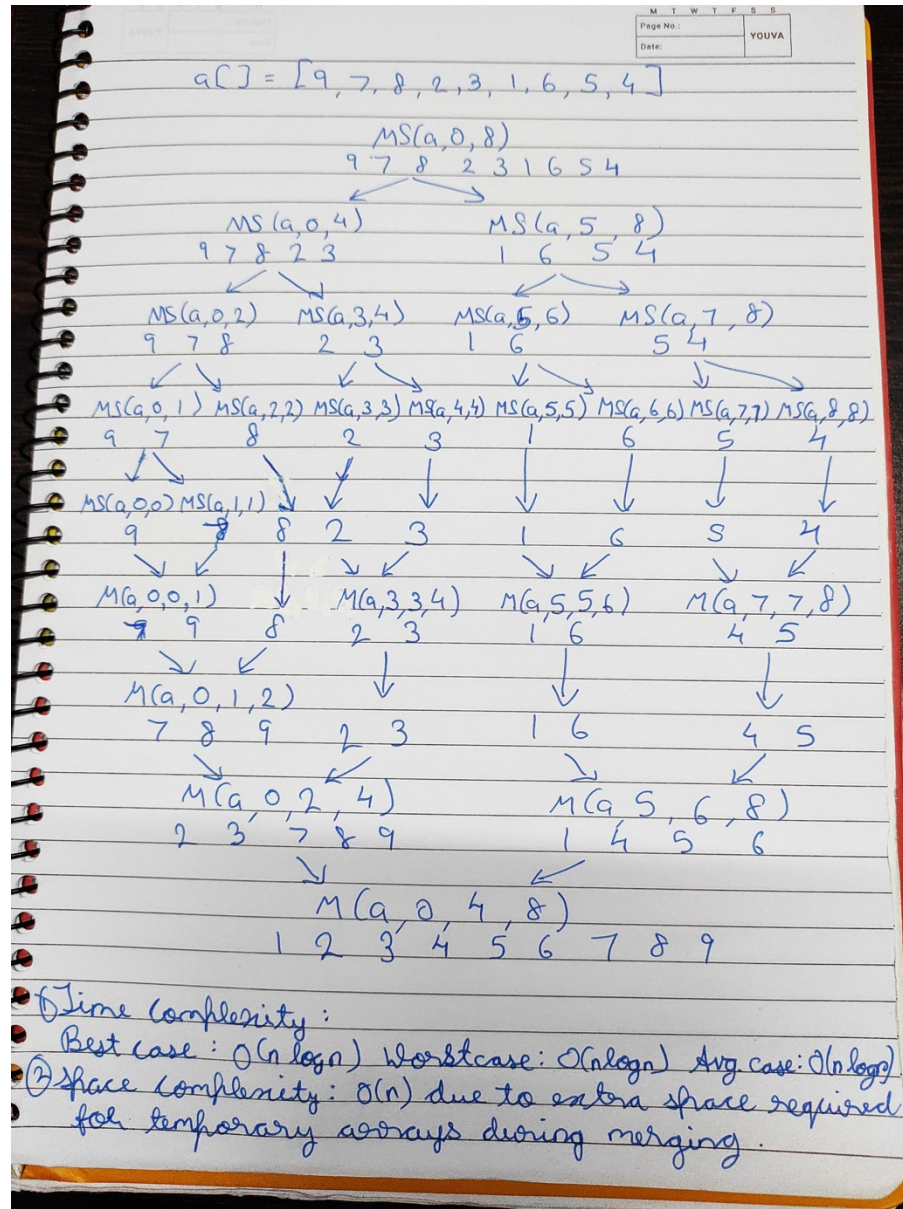 M T W T F S S
Page No.:
Date:
YOUVA
a[] = [9, 7, 8, 2, 3, 1, 6, 5, 4]
MS(a, 0, 8)
9 7 8 2 3 1 6 5 4
MS(a, 0, 4) MS(a, 5, 8)
9 7 8 2 3 1 6 5 4
MS(a,0,2) MS(a,3,4) MS(a,5,6) MS(a,7,8)
9 7 8 2 3 1 6 5 4
MS(a,0,1) MS(a,2,2) MS(a,3,3) MS(a,4,4) MS(a,5,5) MS(a,6,6) MS(a,7,7) MS(a,8,8)
9 7 8 2 3 1 6 5 4
MS(a,0,0) MS(a,1,1)
9 8 2 3 1 6 5 4
M(a,0,0,1) M(a,3,3,4) M(a,5,5,6) M(a,7,7,8)
9 8 2 3 1 6 4 5
M(a,0,1,2)
7 8 9 2 3 1 6 4 5
M(a,0,2,4) M(a,5,6,8)
2 3 7 8 9 1 4 5 6
M(a,0,4,8)
1 2 3 4 5 6 7 8 9
① Time Complexity:
Best case: O(n logn) Worstcase: O(nlogn) Avg. case: O(n logn)
② Space Complexity: O(n) due to extra space required
for temporary arrays during merging.